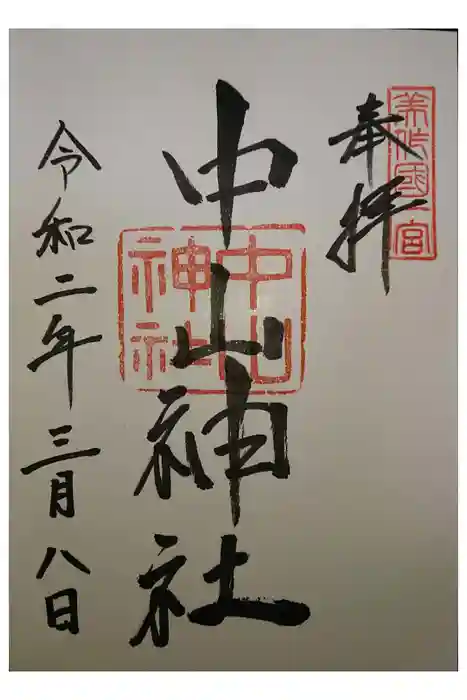 奉拝
美作國一宮
中山神社
中山神社
令和二年三月八日